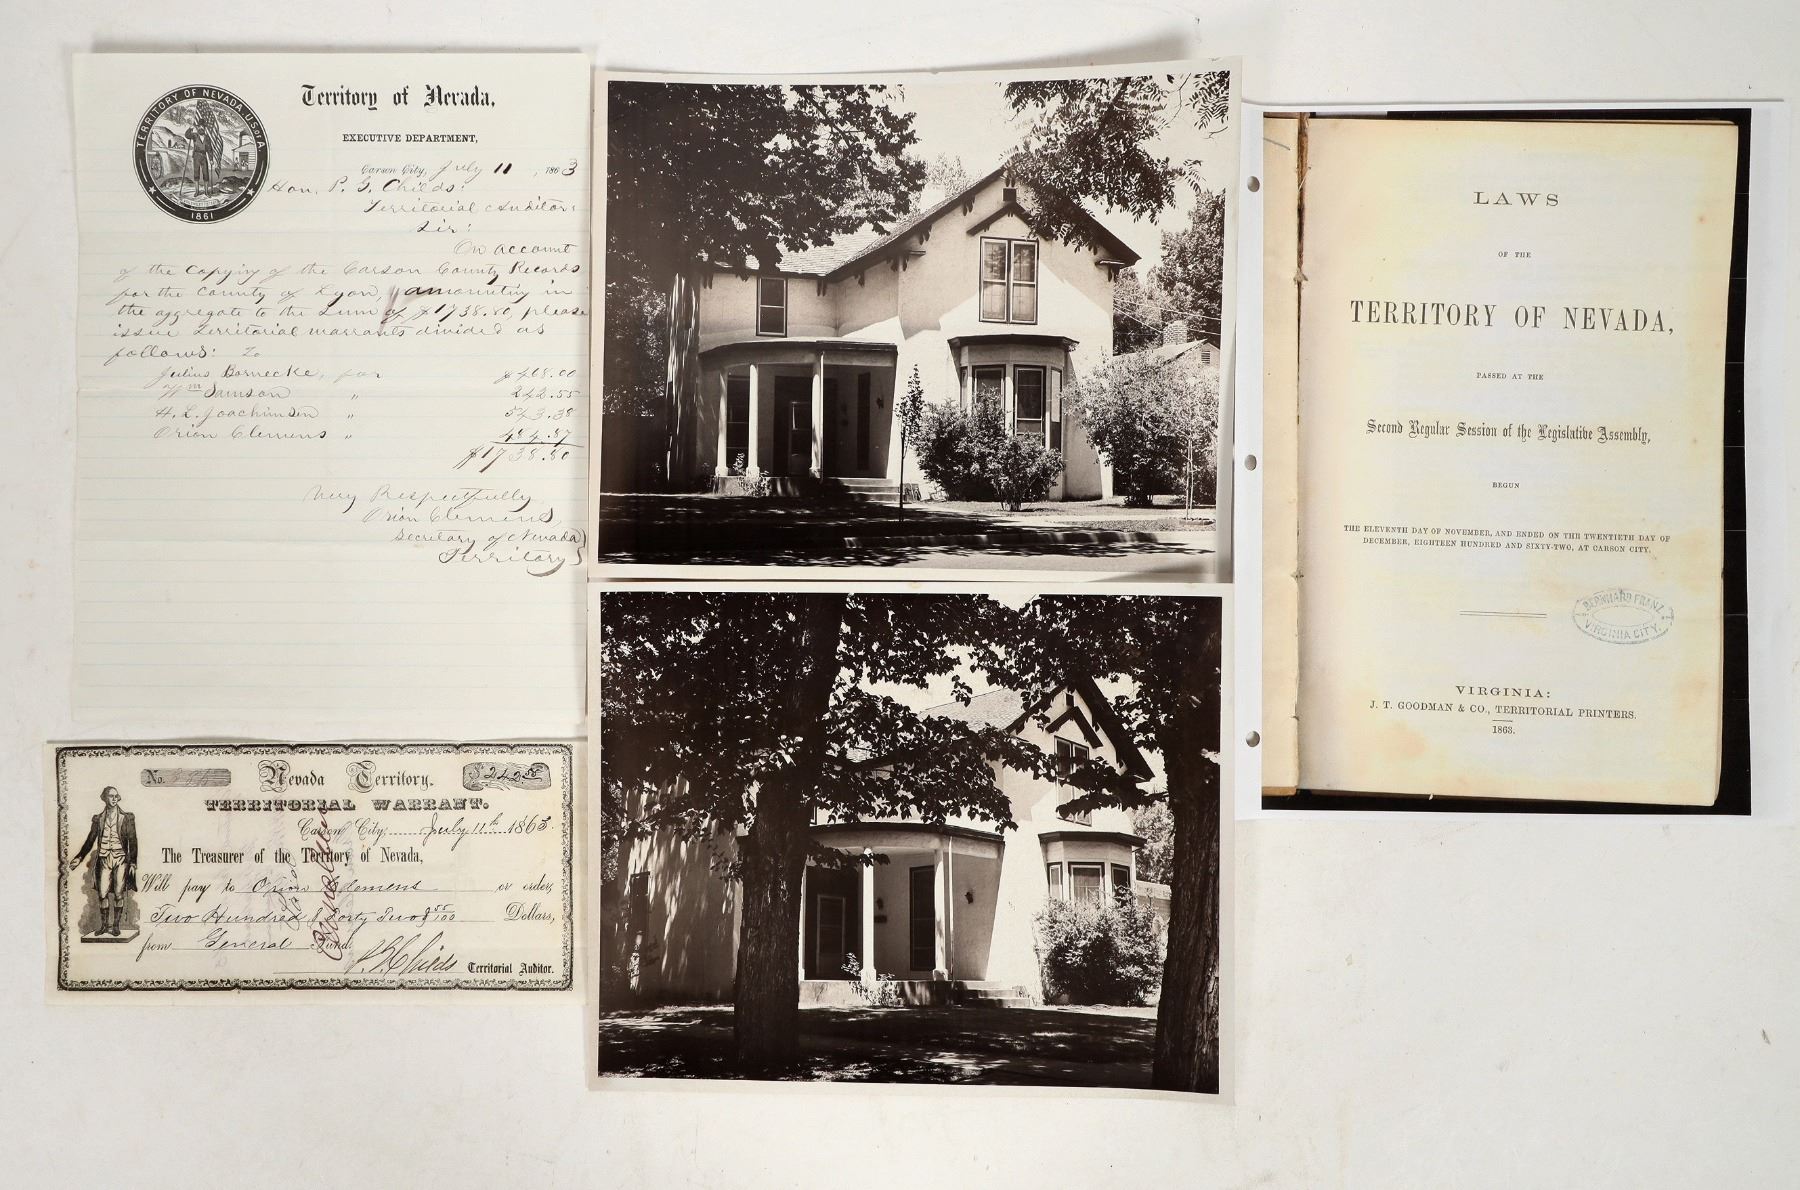 TERRITORY OF NEVADA, U.S. OF A.
1861
Territory of Nevada,
EXECUTIVE DEPARTMENT,
Carson City, July 11, 1863
Hon. P. G. Childs:
Territorial Auditor:
Sir:
On account
of the Copying of the Carson County Records
for the County of Lyon, amounting in
the aggregate to the sum of $1738.80, please
issue Territorial warrants divided as
follows: To
Julius Bornecke, for $468.00
Wm Samson " 242.55
H. L. Joachimsen " 543.38
Orion Clemens " 484.87
$1738.80
Very Respectfully
Orion Clemens,
Secretary of Nevada
Territory
No.
Nevada Territory.
$242 55
TERRITORIAL WARRANT.
Carson City, July 11th 1863.
The Treasurer of the Territory of Nevada,
Will pay to Orion Clemens or order,
Two Hundred & Forty Two & 55/100 Dollars,
from General Fund.
P. G. Childs Territorial Auditor.
LAWS
OF THE
TERRITORY OF NEVADA,
PASSED AT THE
Second Regular Session of the Legislative Assembly,
BEGUN
THE ELEVENTH DAY OF NOVEMBER, AND ENDED ON THE TWENTIETH DAY OF
DECEMBER, EIGHTEEN HUNDRED AND SIXTY-TWO, AT CARSON CITY.
BERNHARD FRANZ
VIRGINIA CITY.
VIRGINIA:
J. T. GOODMAN & CO., TERRITORIAL PRINTERS.
1863.